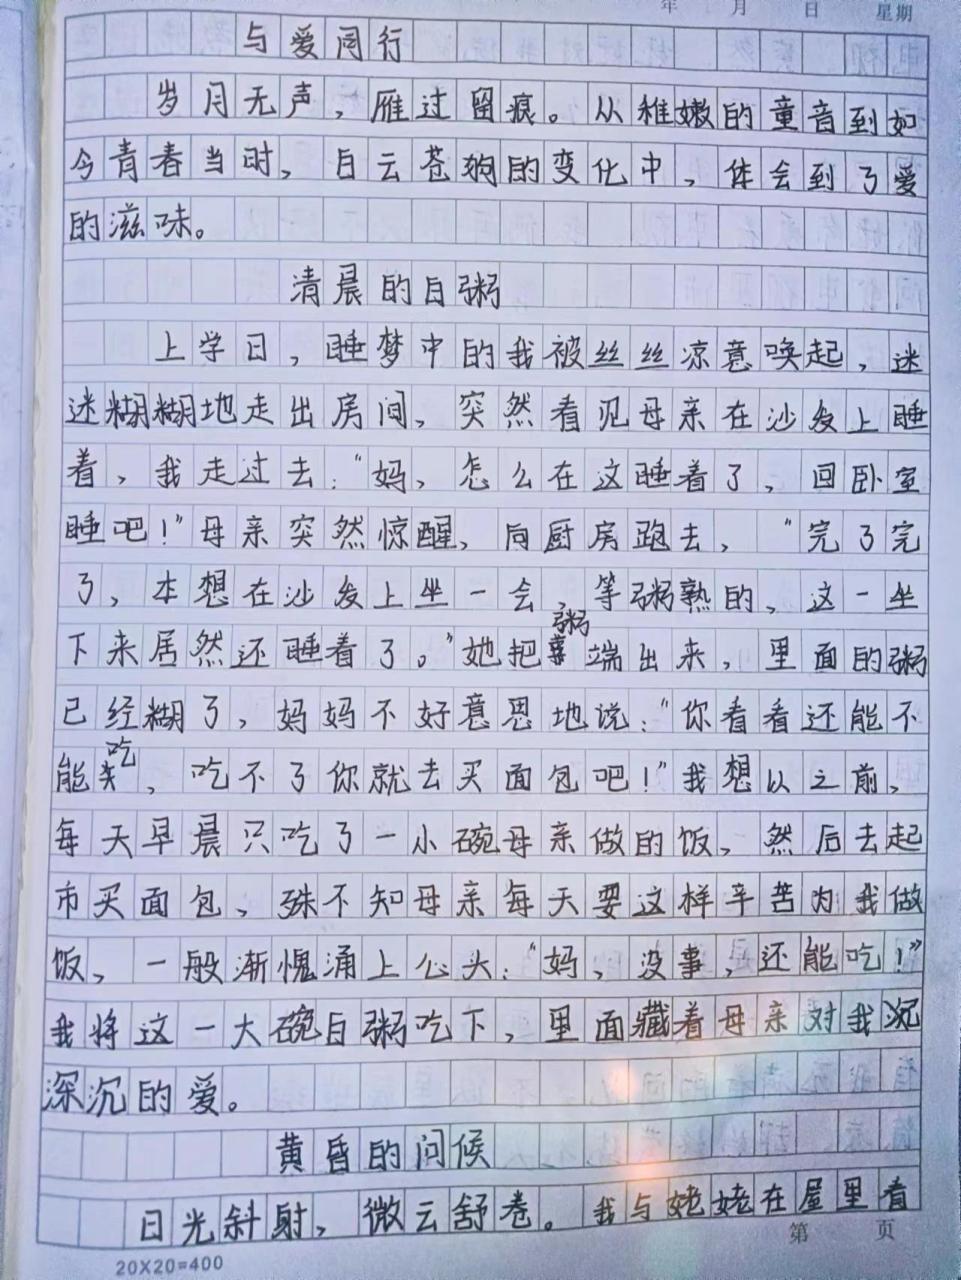 年 月 日 星期
与爱同行
岁月无声，雁过留痕。从稚嫩的童音到如
今青春当时，白云苍狗的变化中，体会到了爱
的滋味。
清晨的白粥
上学日，睡梦中的我被丝丝凉意唤起，迷
迷糊糊地走出房间，突然看见母亲在沙发上睡
着，我走过去：“妈，怎么在这睡着了，回卧室
睡吧！”母亲突然惊醒，向厨房跑去，“完了完
了，本想在沙发上坐一会，等粥熟的，这一坐
下来居然还睡着了。”她把粥端出来，里面的粥
已经糊了，妈妈不好意思地说：“你看看还能不
能吃，吃不了你就去买面包吧！”我想以之前，
每天早晨只吃了一小碗母亲做的饭，然后去起
市买面包，殊不知母亲每天要这样辛苦为我做
饭，一般渐愧涌上心头：“妈，没事，还能吃！”
我将这一大碗白粥吃下，里面藏着母亲对我沉
深沉的爱。
黄昏的问候
日光斜射，微云舒卷。我与姥姥在屋里看
第 页
20X20=400